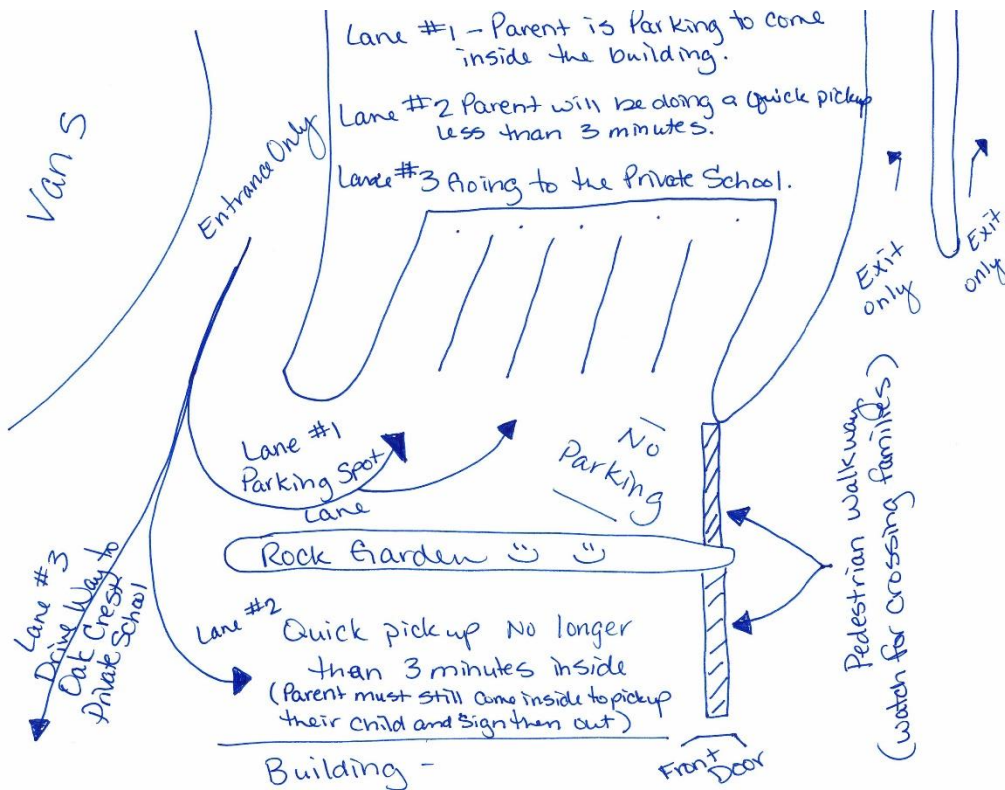 Lane #1 - Parent is Parking to come
inside the building.
Lane #2 Parent will be doing a Quick pickup
less than 3 minutes.
Lande #3 Going to the Private School.
Vans
Entrance Only
Exit
only
Exit
only
Lane #1
Parking Spot
Lane
No
Parking
Rock Garden
Lane #3
Drive Way to
Oak Crest
Private School
Lane #2 Quick pick up No longer
than 3 minutes inside
(Parent must still come inside to pickup
their child and sign then out)
Pedestrian Walkway
(watch for crossing families)
Building -
Front
Door